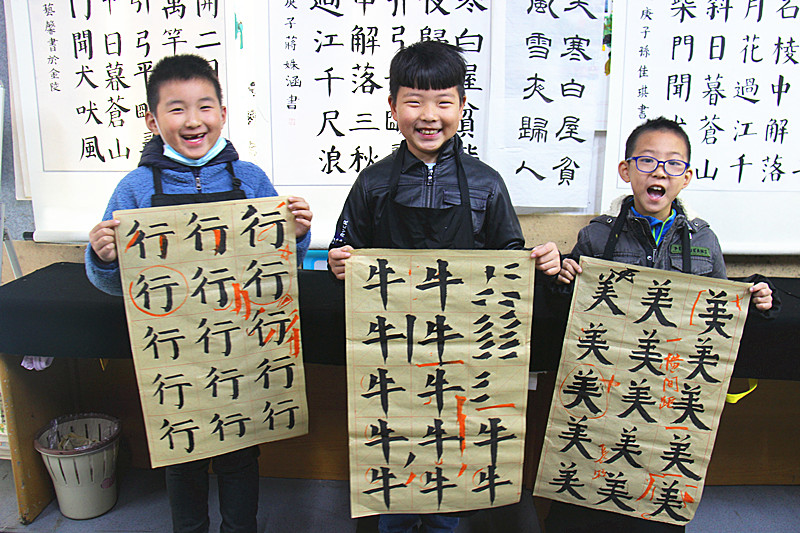 開二
萬竿
引弓平
中日暮蒼山
門聞犬吠風
藝馨書於金陵
寒白屋貧
夜歸
引弓
中解落三秋
過江千尺浪
庚子蔣姝涵書
寒白屋貧
風雪夜歸人
棱中解落
月花過江千
斜日暮蒼山
柴門聞
庚子孫佳琪書
行行行
行行行
行行行
行行行
行行行
牛牛
牛牛
牛牛
牛牛牛
牛牛牛
美美美
美美美
美美美
美美美
美美美
一横间距